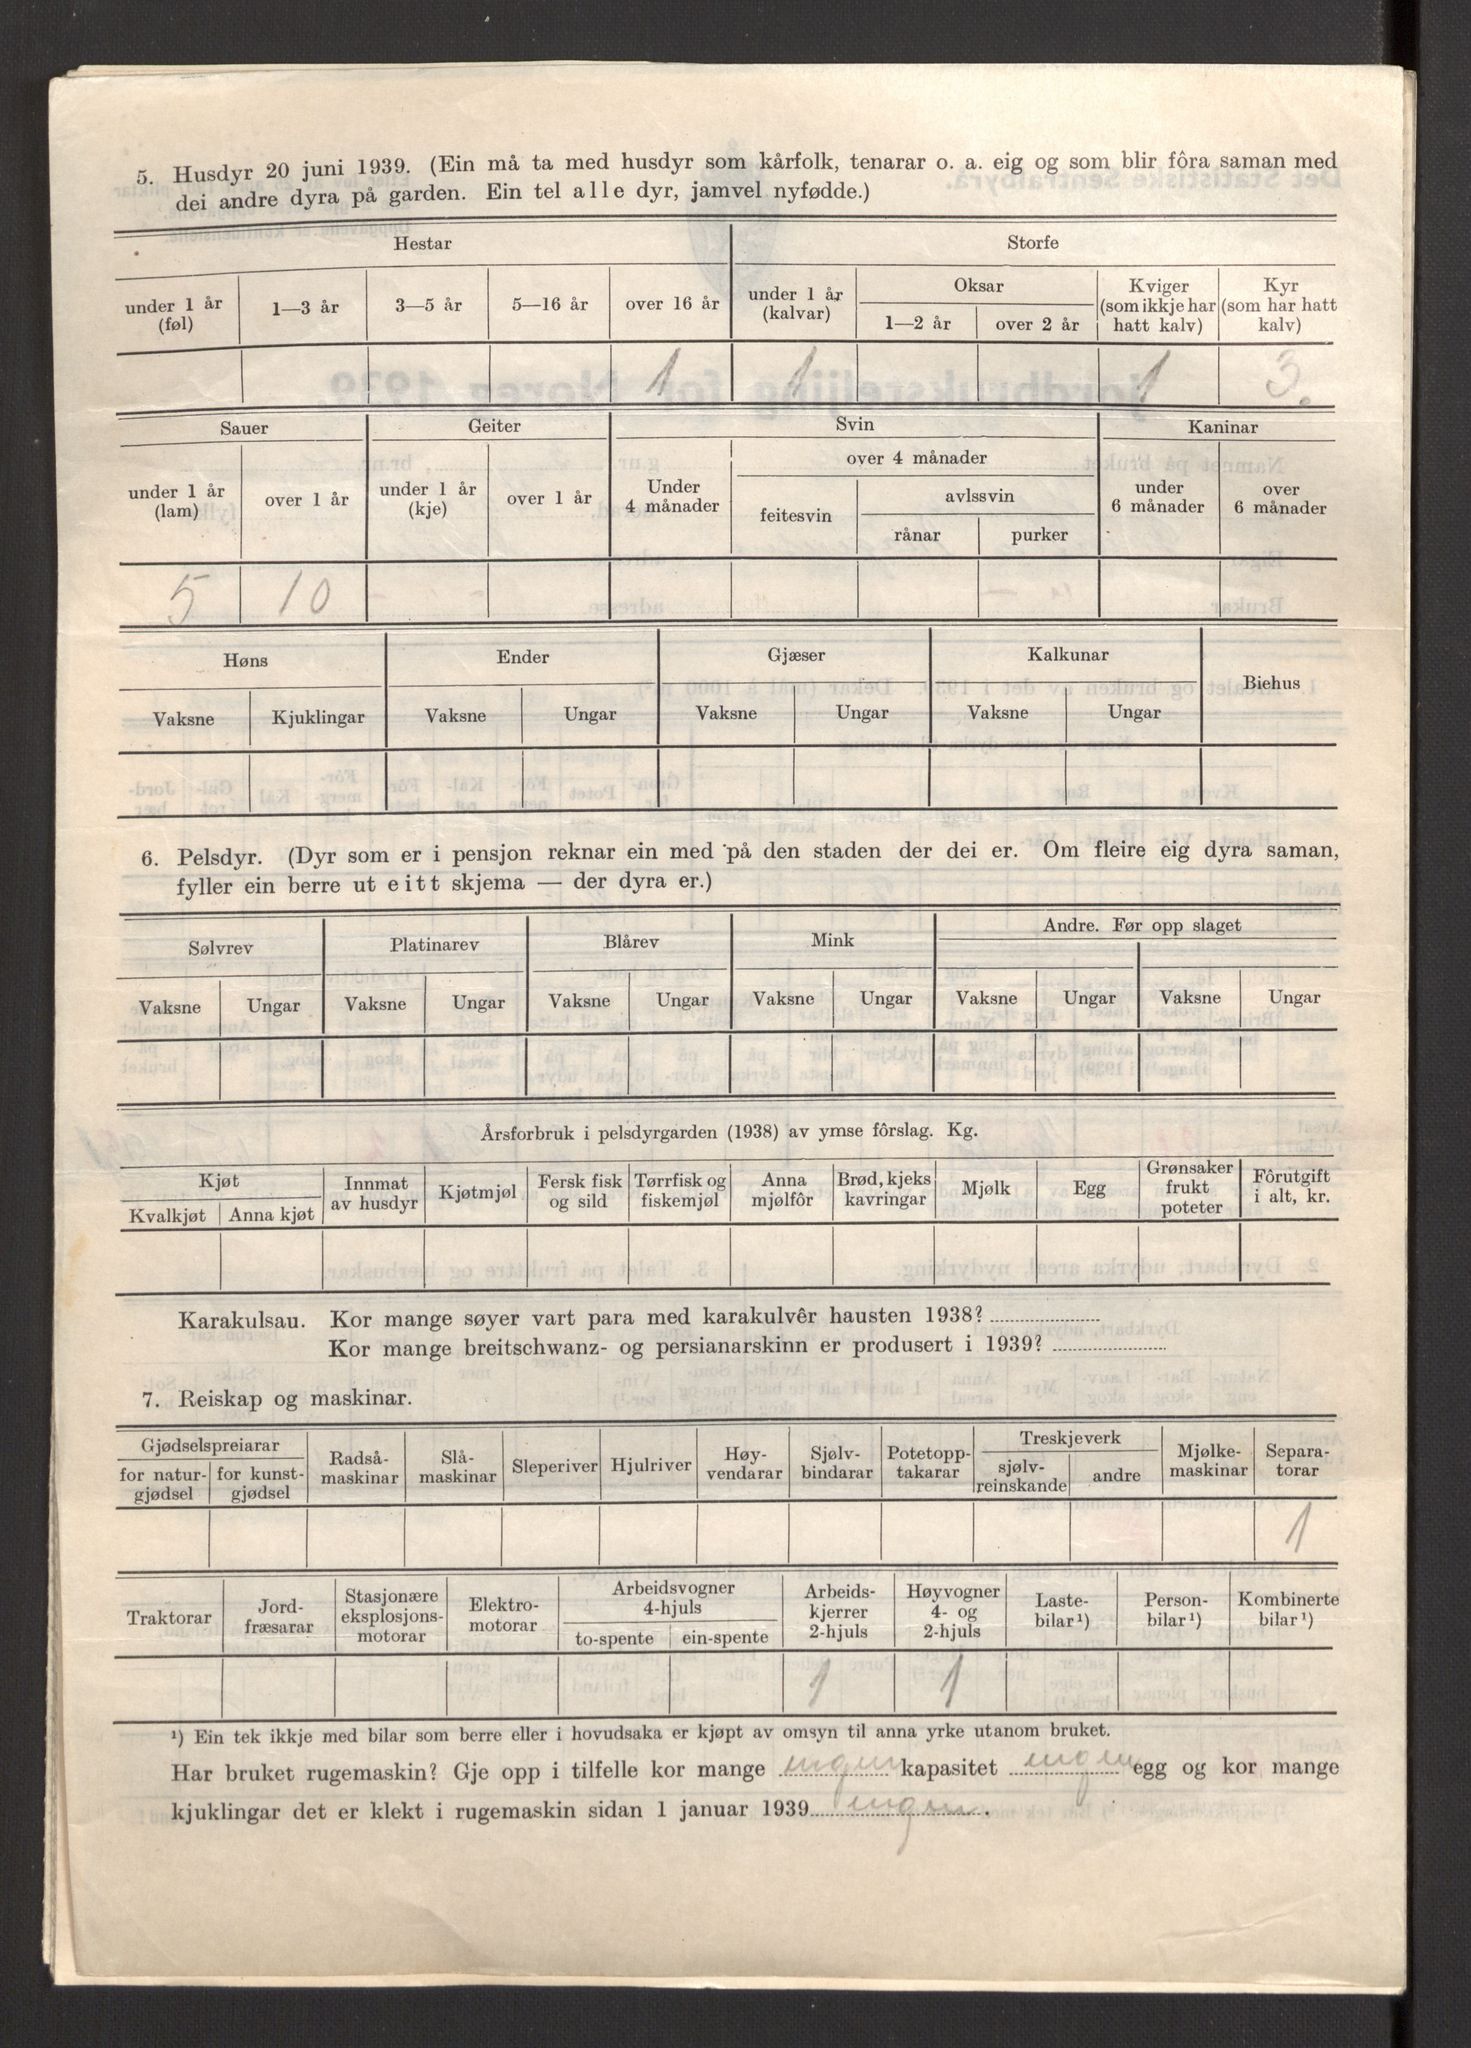 5. Husdyr 20 juni 1939. (Ein må ta med husdyr som kårfolk, tenarar o. a. eig og som blir fôra saman med
dei andre dyra på garden. Ein tel alle dyr, jamvel nyfødde.)
Hestar Storfe
under 1 år (føl) 1—3 år 3—5 år 5—16 år over 16 år under 1 år (kalvar) Oksar 1—2 år over 2 år Kviger (som ikkje har hatt kalv) Kyr (som har hatt kalv)
1 1 1 3.
Sauer Geiter Svin Kaninar
over 4 månader
under 1 år (lam) over 1 år under 1 år (kje) over 1 år Under 4 månader feitesvin avlssvin rånar purker under 6 månader over 6 månader
5 10
Høns Ender Gjæser Kalkunar Biehus
Vaksne Kjuklingar Vaksne Ungar Vaksne Ungar Vaksne Ungar
6. Pelsdyr. (Dyr som er i pensjon reknar ein med på den staden der dei er. Om fleire eig dyra saman,
fyller ein berre ut eitt skjema — der dyra er.)
Sølvrev Platinarev Blårev Mink Andre. Før opp slaget
Vaksne Ungar Vaksne Ungar Vaksne Ungar Vaksne Ungar Vaksne Ungar Vaksne Ungar
Årsforbruk i pelsdyrgarden (1938) av ymse fôrslag. Kg.
Kjøt Kvalkjøt Anna kjøt Innmat av husdyr Kjøtmjøl Fersk fisk og sild Tørrfisk og fiskemjøl Anna mjølfôr Brød, kjeks kavringar Mjølk Egg Grønsaker frukt poteter Fôrutgift i alt, kr.
Karakulsau. Kor mange søyer vart para med karakulvêr hausten 1938?
Kor mange breitschwanz- og persianarskinn er produsert i 1939?
7. Reiskap og maskinar.
Gjødselspreiarar for naturgjødsel for kunstgjødsel Radsåmaskinar Slåmaskinar Sleperiver Hjulriver Høyvendarar Sjølvbindarar Potetopptakarar Treskjeverk sjølvreinskande andre Mjølkemaskinar Separatorar
1
Traktorar Jordfræsarar Stasjonære eksplosjonsmotorar Elektromotorar Arbeidsvogner 4-hjuls to-spente ein-spente Arbeidskjerrer 2-hjuls Høyvogner 4- og 2-hjuls Lastebilar¹) Personbilar¹) Kombinerte bilar¹)
1 1
¹) Ein tek ikkje med bilar som berre eller i hovudsaka er kjøpt av omsyn til anna yrke utanom bruket.
Har bruket rugemaskin? Gje opp i tilfelle kor mange ingen kapasitet ingen egg og kor mange
kjuklingar det er klekt i rugemaskin sidan 1 januar 1939 ingen.